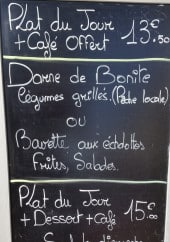 Plat du Jour 13€50
+ Café Offert
Darne de Bonite
légumes grillés. (Pêche locale)
ou
Bavette aux échalottes
Frites, Salades.
Plat du Jour 15€00
+ Dessert + Café